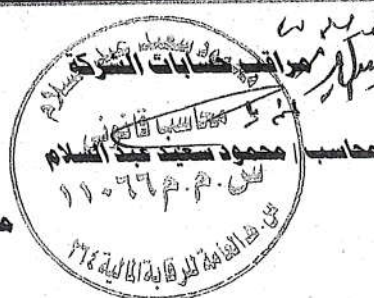 مراقب حسابات الشركة
محاسب قانوني
محاسب / محمود سعيد عبد السلام
س.م.م ١١٠٦٦
س. هـ العامة للرقابة المالية ٢٦٤